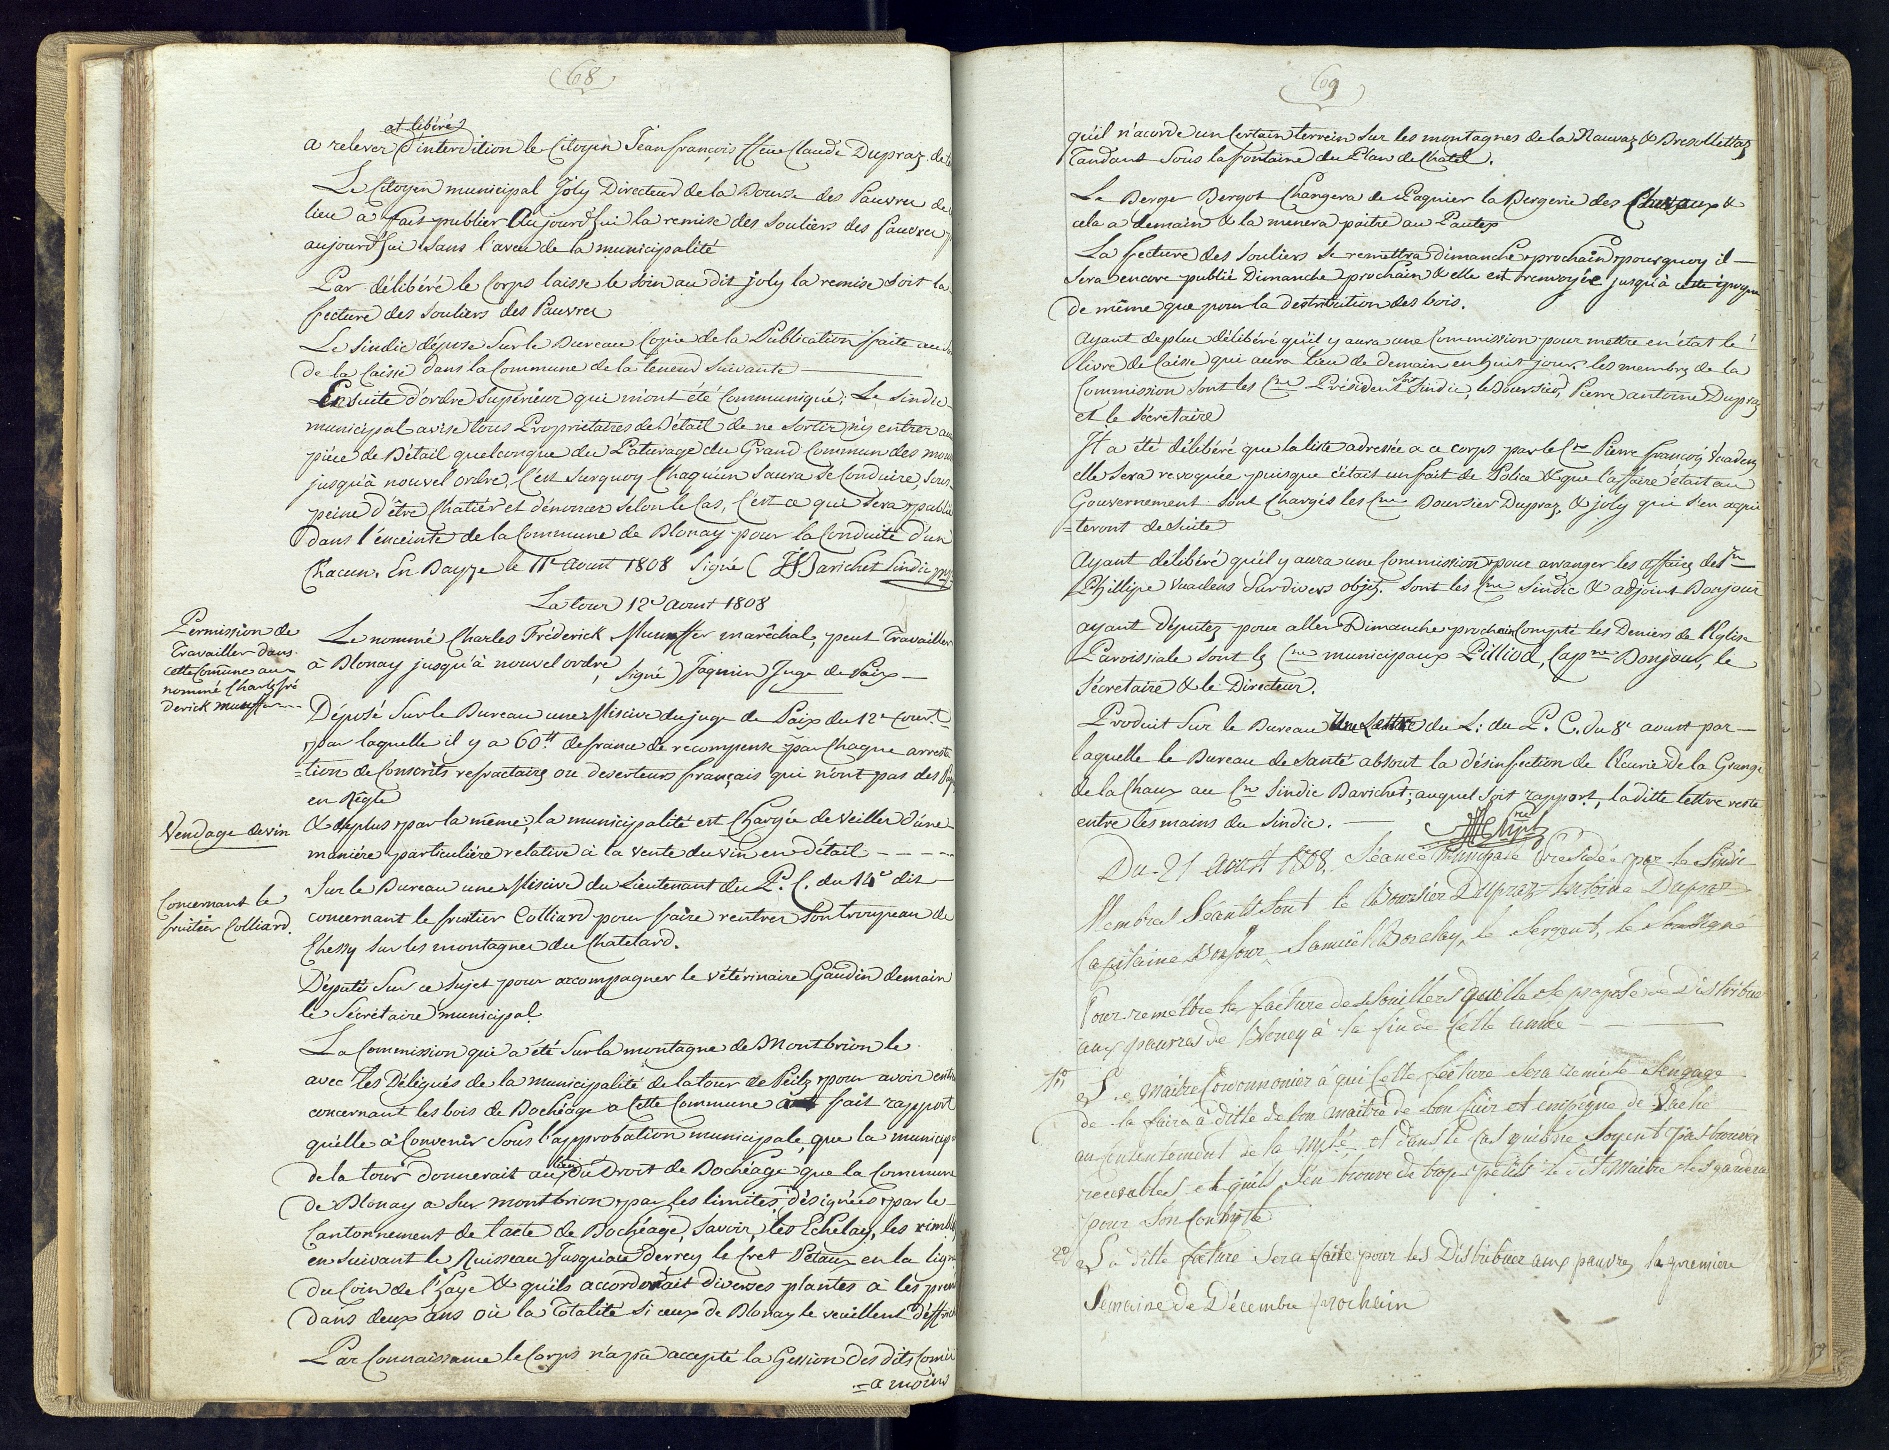 68
et libéré
a relever d'interdition le Citoyen Jean françois ffeue Claude Dupraz
Le Citoyen municipal Joly Directeur de la Bourse des Pauvres de
lieu a fait publier Aujourd'hui la remise des souliers des pauvres
aujourd'hui sans l'aveu de la municipalité
Par délibéré le Corps laisse le soin au dit joly la remise soit la
fecture des souliers des Pauvres
Le Sindic dépose Sur le Bureau Copie de la Publication faite au
de la Caisse dans la Commune de la teneur Suivante
Ensuite d'ordre Supérieur qui m'ont été Communiqué; Le Sindic
municipal avise tous Propriétaires de Bétail de ne Sortir n'y entrer au
piéce de Bétail quelconque du Paturage du Grand Commun des mon
jusqu'à nouvel ordre, C'est Surquoy Chaqu'un Saura se Conduire, Sous
peine d'être Chatier et dénoncer Selon le Cas, C'est ce qui Sera publié
dans l'enceinte de la Commune de Blonay pour la Conduite d'un
Chacun. En Bayze le 11e aoust 1808 Signé Barichet Sindic
La tour 12e aoust 1808
Permission de
travailler dans
cette Comune au
nommé Charles fré
derick
Le nommé Charles Fréderick maréchal, peut Travailler
à Blonay jusqu'à nouvel ordre, Signé) Jaquin Juge de Paix
Déposé Sur le Bureau une Missive du juge de Paix du 12e Court
par laquelle il y a 60 tt de france de recompense par Chaque arresta
=tion de Conscrits refractaires ou deserteurs français qui n'ont pas des Pap
en Régle
Vendage de vin
& deplus par la même, la municipalité est Chargée de Veiller d'une
maniére particuliére relative à la vente du vin en détail - - - -
Concernant le
fruitier Colliard.
Sur le Bureau une Missive du Lieutenant du P. C. du 14e dit
concernant le fruitier Colliard pour faire rentrer Son troupeau de
Chessy Sur les montagnes du Chatelard.
Députés Sur ce Sujet pour accompagner le vétérinaire Gaudin demain
le Sécrétaire municipal
La Commission qui a été Sur la montagne de Montbrion le
avec les Délégués de la municipalité de la tour de Peilz pour avoir
concernant les bois de Bochéage a Cette Commune fait rapport
qu'elle a Convenir Sous l'approbation municipale, que la municip
de la tour donnerait au lieu du droit de Bochéage que la Commune
de Blonay a Sur montbrion par les limites désignées par le
Cantonnement de l'acte de Bochéage, Savoir, les Echelay, les
en Suivant le Ruisseau Jusqu'au derrey le Cret Petaux en la ligne
du Coin de l'haye & qu'ils accorderait diverses plantes à les
dans deux ans où la Totalité Si ceux de Blonay le veuillent
Par Connaissance le Corps n'a pas accepté la Gession des dits Comis
=a moins
69
qu'il n'acorde un Certain terrein Sur les montagnes de la Rauvaz & Bresollettaz
Tandant Sous la fontaine du Plan de Chatel.
Le Berger Bergot Changera de Pagnier la Bergerie des &
cela a demain & la menera paitre au Pautex
La fecture des souliers Se remettra dimanche prochain pourquoy il
Sera encore publié Dimanche prochain & elle est renvoyée jusqu'à
de même que pour la destribution des bois.
Ayant de plus délibéré qu'il y aura une Commission pour mettre en état le
livre de Caisse qui aura lieu de demain en huit jours. les membres de la
Commission Sont les Cns Président Sindic, le boursier, Pierre antoine Dupraz
et le Sécretaire
Il a été délibéré que la liste adressée a ce corps par le Cn Pierre françois Vuadens
elle Sera revoquée puisque c'était un fait de Police & que l'affaire était au
Gouvernement. Sont Chargés les Cns Boursier Dupraz, & joly qui s'en aqui
=teront desuite
Ayant délibéré qu'il y aura une Commission pour arranger les affaires de
Phillipe Vuadens Sur divers objets. Sont les Cns Sindic & adjoint Bonjour
ayant députez pour aller Dimanche prochain Compte les Deniers de l'Eglise
Paroissiale Sont les Cns municipaux Pilliod, Cap.ne Bonjour, le
Sécretaire & le Directeur.
Produit Sur le Bureau Une Lettre du L: du P. C. du 8e aoust par
laquelle le Bureau de santé absout la désinfection de l'Ecurie de la Grange
de la Chaux au Cn Sindic Barichet; auquel soit rapport, la ditte lettre reste
entre les mains du Sindic.
Du 21 aoust 1808. Séance Municipale Présidée par le Sindic
Membres Séants Sont le Boursier Dupraz Antoine Dupraz
Capitaine Bonjour, Samuel Boralay, le Sergent, le soussigné
Pour remettre la facture des Souillers quelle se propose de Distribuer
aux pauvres de Bloney à la fin de Cette année
1o Le Maitre Cordonnonier à qui Cette fecture Sera remise S'engage
de la faira à ditte de bon maitre de bon Cuir et empégne de Vache
au Contentement de la Mpté et dans le Cas quils ne Soyent pas trouvés
recevables et quils S'en trouve de trop petits le dt Maitre les gardera
pour Son Compte
2o La ditte fecture Sera faite pour les Distribuer aux pauvres la première
Semaine de Décembre prochain